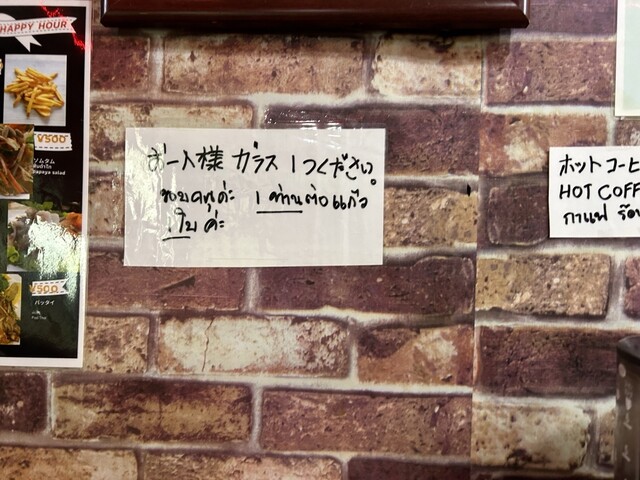 HAPPY HOUR
¥500
ソムタム
papaya salad
¥500
パッタイ
お一人様 ガラス 1つください。
ขอบคุณค่ะ 1 ท่านต่อแก้ว
1 ใบ ค่ะ
ホットコーヒ
HOT COFF
กาแฟ ร้อ